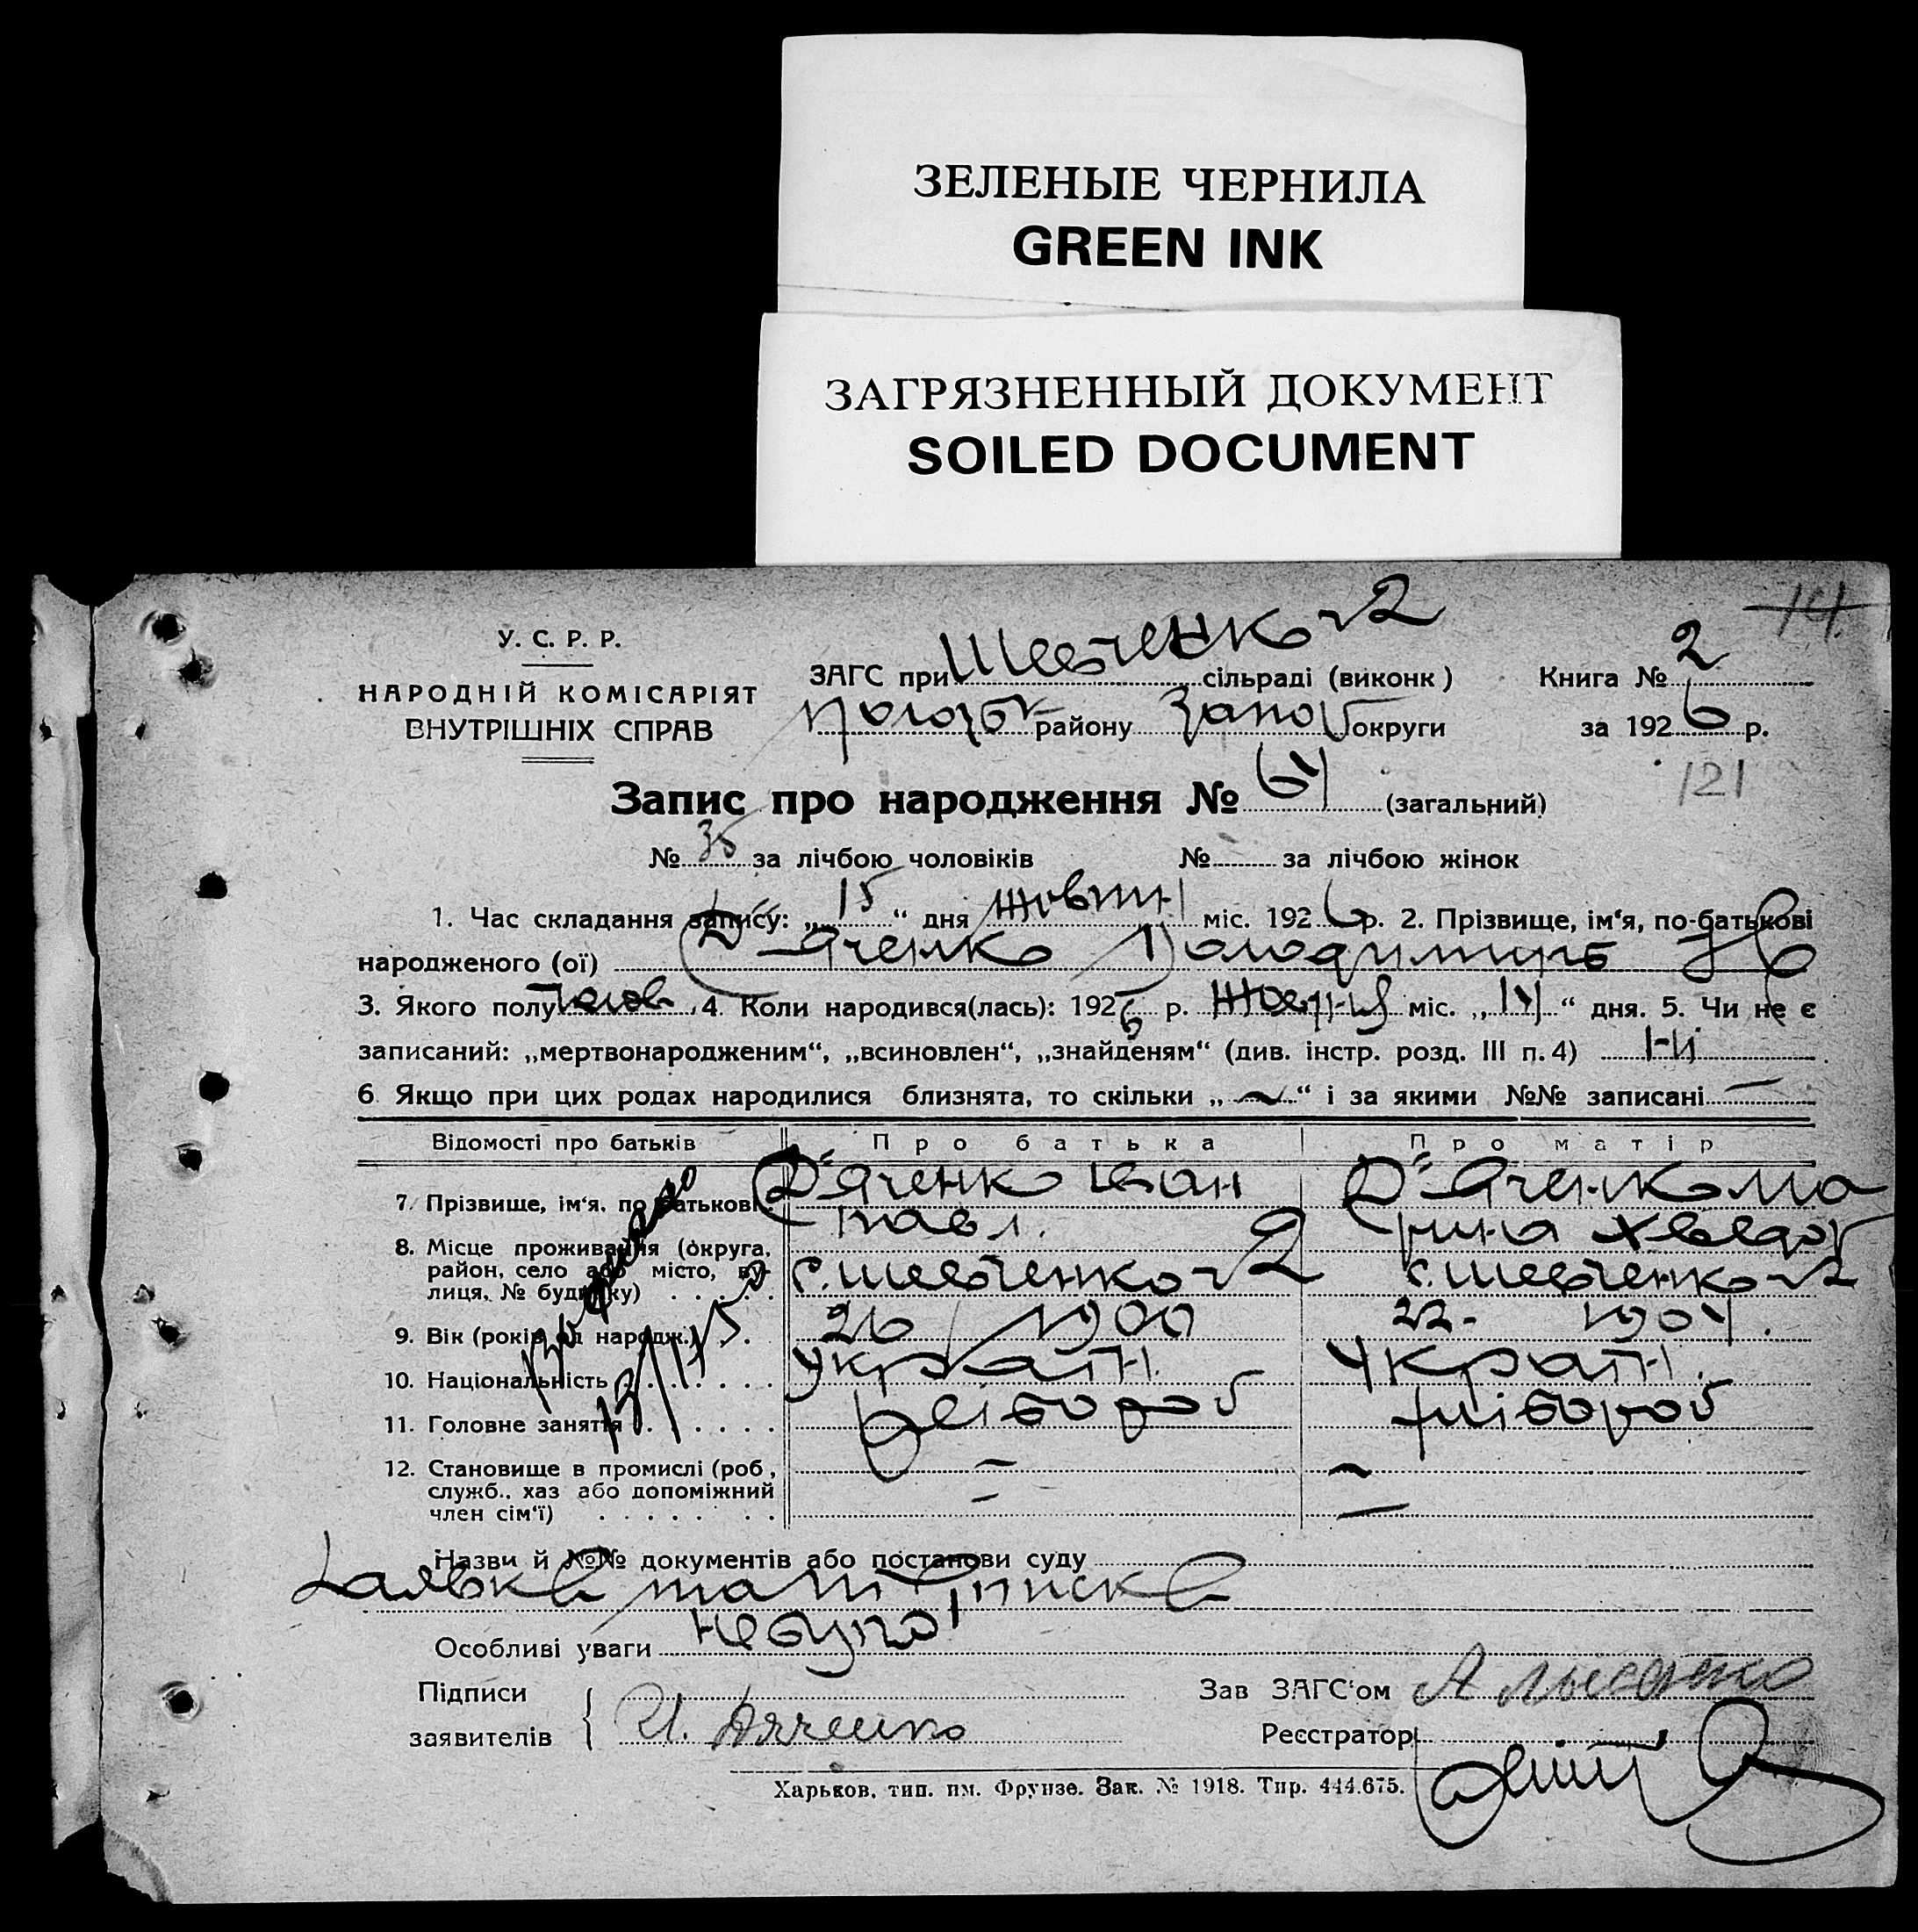 ЗЕЛЕНЫЕ ЧЕРНИЛА
GREEN INK
ЗАГРЯЗНЕННЫЙ ДОКУМЕНТ
SOILED DOCUMENT
14.
У. С. Р. Р.
НАРОДНІЙ КОМІСАРІЯТ
ВНУТРІШНІХ СПРАВ
ЗАГС при Шевченко №2 сільраді (виконк) Книга № 2
району Запор округи за 1926 р.
121
Запис про народження № 64 (загальний)
№ 35 за лічбою чоловіків № за лічбою жінок
1. Час складання запису: „ 15 “ дня жовтн міс. 1926 р. 2. Прізвище, ім‘я, по-батькові
народженого (ої) Д"яченко Володимиръ Ів
3. Якого полу чолов 4. Коли народився(лась): 1926 р. Жовтня міс. „ 14 “ дня. 5. Чи не є
записаний: „мертвонародженим“, „всиновлен“, „знайденям“ (див. інстр. розд. III п. 4) Ні
6. Якщо при цих родах народилися близнята, то скільки „ — “ і за якими №№ записані —
Відомості про батьків Про батька Про матір
7. Прізвище, ім‘я, по батькові Д"яченко Іван Павл. Д"яченко Марина Хведор
8. Місце проживання (округа, район, село або місто, вулиця, № будинку) с. Шевченко №2 с. Шевченко №2
9. Вік (років од народж.) 26 1900 22 - 1904.
10. Національність Україн. Україн.
11. Головне заняття хлібороб хлібороб
12. Становище в промислі (роб, служб., хаз або допоміжний член сім‘ї) — —
Назви й №№ документів або постанови суду
Особливі уваги
Підписи
заявителів И. Дяченко
Зав ЗАГС‘ом А Лысенко
Реєстратор
Харьков, тип. им. Фрунзе. Зак. № 1918. Тир. 444.675.